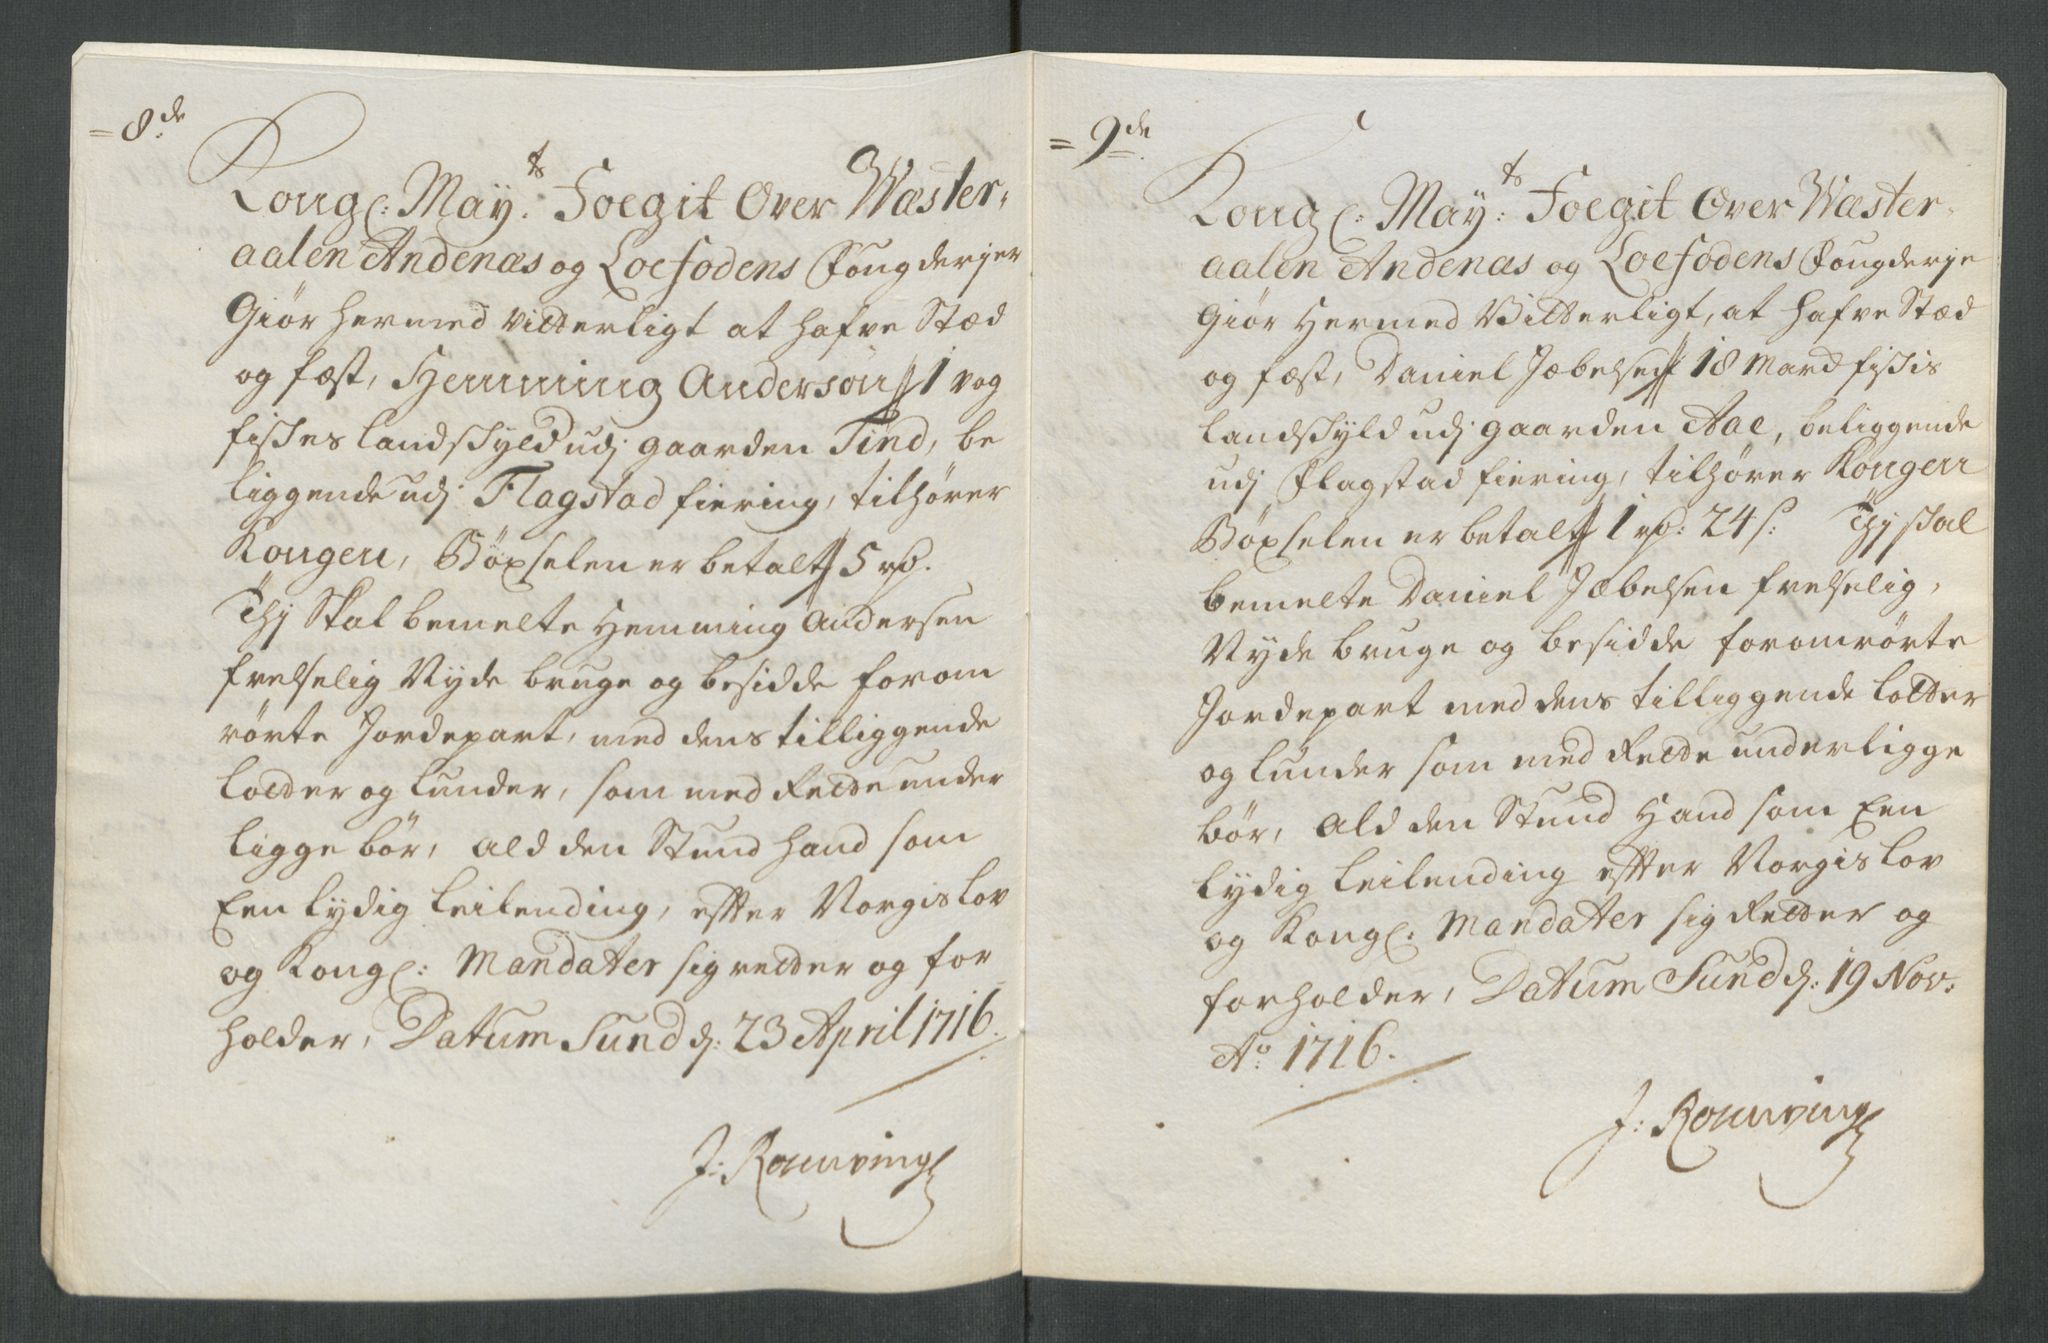 = 8de
Kongl: Mayts: Foegit Over Wæster-
aalen Andenæs og Loefodens Fougderjer
Giör hermed vitterligt at hafve Stæd
og fæst, Hemming Anderson // 1 vog
fisKes landsKyld udj gaarden Tind, be
liggende udj Flagstad fiering, tilhører
Kongen, Böxselen er betalt // 5 rd.
Thj Skal bemelte Hemming Andersen
frelselig Nyde bruge og besidde forom
rörte Jordepart, med dens tilliggende
lotter og lunder, som med Rette under
ligge bör, ald den Stund hand som
Een lydig leilending, efter Norgis lov
og Kongl: Mandater sig retter og for
holder, Datum Sund d: 23 April 1716.
J: Rouwing
= 9de
Kongl: Mayts: Foegit Over Wæster-
aalen Andenæs og Loefodens Fougderje
Giör Hermed Vitterligt, at hafve Stæd
og fæst, Daniel Jæbelsen // 18 Mard fisKis
landsKyld udj gaarden Aae, beliggende
udj Flagstad fiering, tilhörer Kongen
Böxselen er betalt // 1 rd: 24 s: Thj skal
bemelte Daniel Jæbelsen frelselig,
Nyde bruge og besidde foromrörte
Jordepart med dens tilliggende lotter
og lunder som med Rette underligge
bör, Ald den Stund Hand som Een
lydig leilending efter Norgis lov
og Kongl: Mandater sig Retter og
forholder, Datum Sund d: 19 Nov:
Ao: 1716.
J: Rouwing